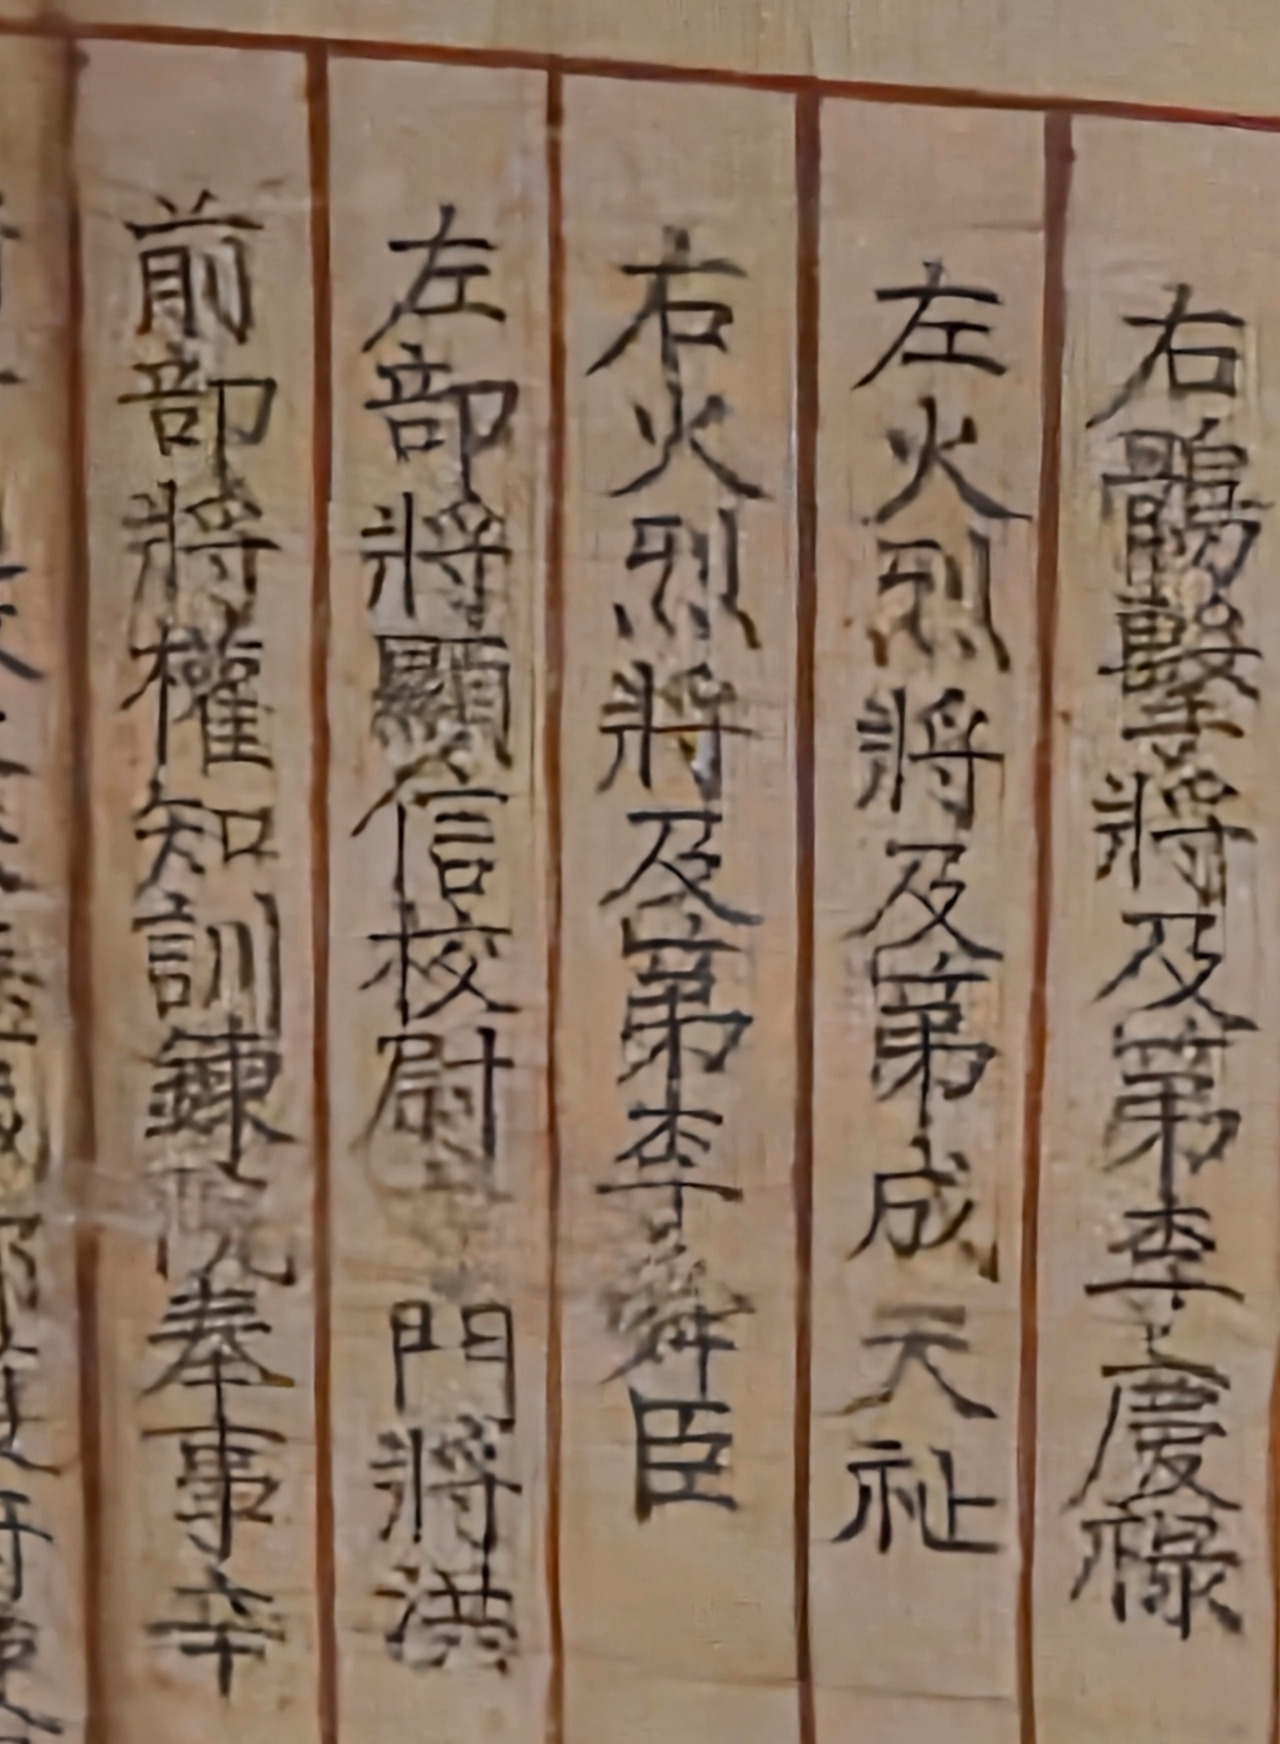 右鶻擊將及第李慶祿
左火烈將及第成天祉
右火烈將及第李舜臣
左部將顯信校尉 門將洪
前部將權知訓鍊院奉事辛